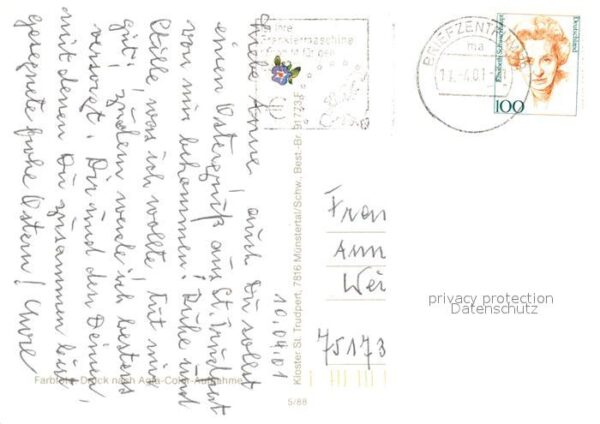 10.04.01
Liebe Anne, auch Du sollst
einen Ostergruß aus St. Trudpert
von mir bekommen! Ruhe und
Stille, was ich wollte, tut mir
gut; zudem werde ich bestens
versorgt. Dir und den Deinen,
mit denen Du zusammen bist
gesegnete frohe Ostern!
Farbfoto-Druck nach Agfa-Color-Aufnahme
5/88
Kloster St. Trudpert, 7816 Münstertal/Schw., Best.-Br. 91773 F
Ihre
Frankiermaschine
BRIEFZENTRUM
ma
11.-4.01
Elisabeth Schwarzhaupt
Deutschland
100
Frau
Ann
Wei
75173
privacy protection
Datenschutz